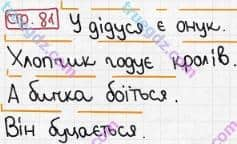 стр. 81 У дідуся є онук.
Хлопчик годує кролів.
А бичка боїться.
Він буцається.